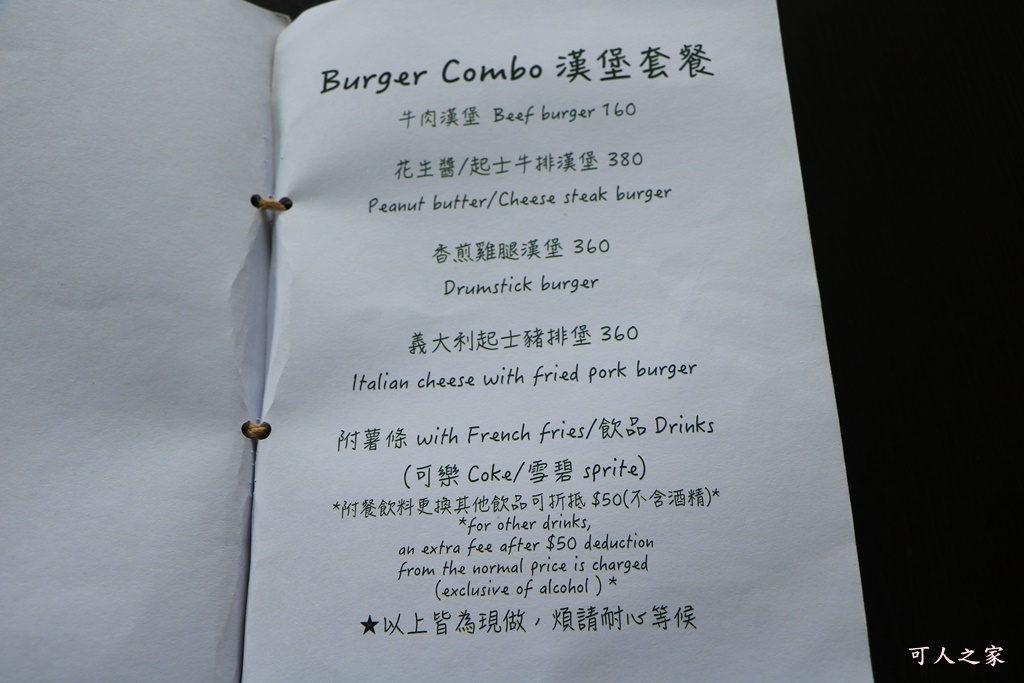 Burger Combo 漢堡套餐
牛肉漢堡 Beef burger 160
花生醬/起士牛排漢堡 380
Peanut butter/Cheese steak burger
香煎雞腿漢堡 360
Drumstick burger
義大利起士豬排堡 360
Italian cheese with fried pork burger
附薯條 with French fries/飲品 Drinks
(可樂 Coke/雪碧 sprite)
*附餐飲料更換其他飲品可折抵 $50(不含酒精)*
*for other drinks,
an extra fee after $50 deduction
from the normal price is charged
(exclusive of alcohol ) *
★以上皆為現做，煩請耐心等候
可人之家